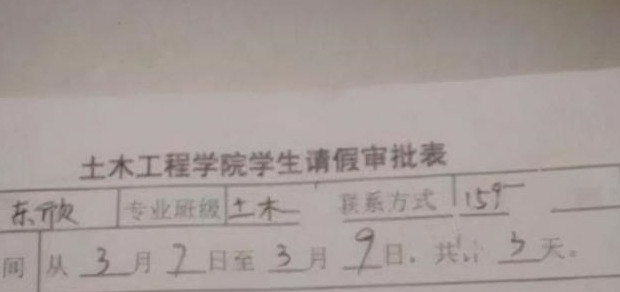 土木工程学院学生请假审批表
东欣 专业班级 土木 联系方式 159
间 从 3 月 7 日至 3 月 9 日，共计 3 天。